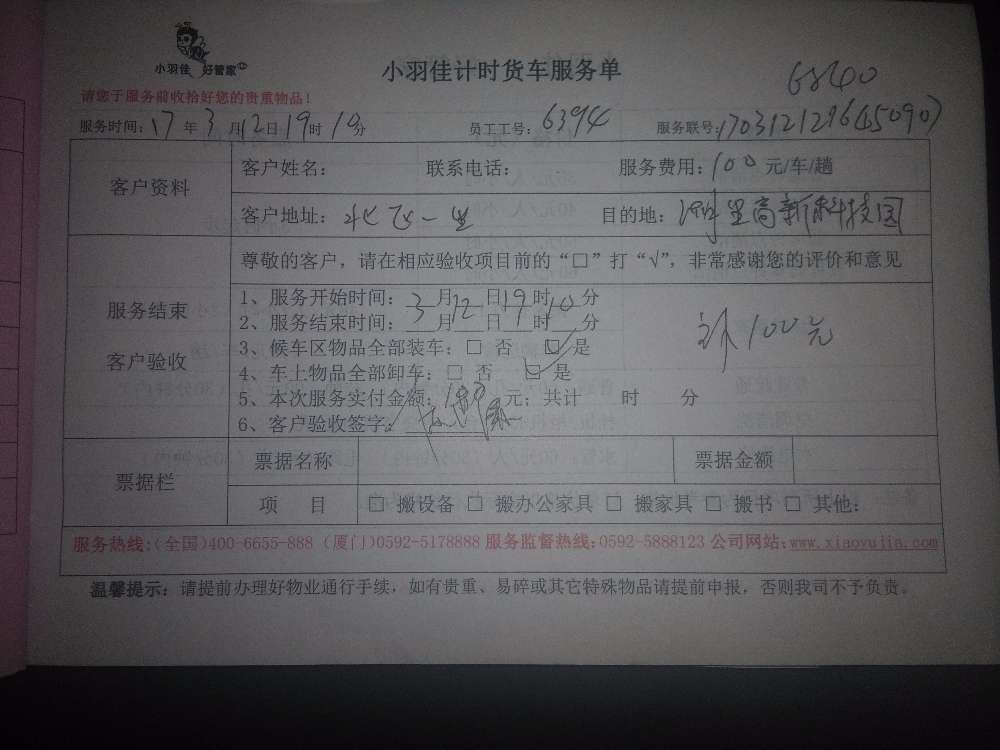 小羽佳 好管家
小羽佳计时货车服务单
68400
请您于服务前收拾好您的贵重物品！
服务时间：17年3月12日19时10分 员工工号：6394 服务联号：
客户资料
客户姓名： 联系电话： 服务费用：100元/车/趟
客户地址： 目的地：高新科技园
服务结束
客户验收
尊敬的客户，请在相应验收项目前的“□”打“√”，非常感谢您的评价和意见
1、服务开始时间：3月12日19时10分
2、服务结束时间： 月 日 时 分
3、候车区物品全部装车：□ 否 □ 是
4、车上物品全部卸车：□ 否 □ 是
5、本次服务实付金额：100元；共计 时 分
6、客户验收签字：
100元
票据栏
票据名称 票据金额
项 目 □ 搬设备 □ 搬办公家具 □ 搬家具 □ 搬书 □ 其他：
服务热线：(全国)400-6655-888 (厦门)0592-5178888 服务监督热线：0592-5888123 公司网站：www.xiaoyujia.com
温馨提示：请提前办理好物业通行手续，如有贵重、易碎或其它特殊物品请提前申报，否则我司不予负责。